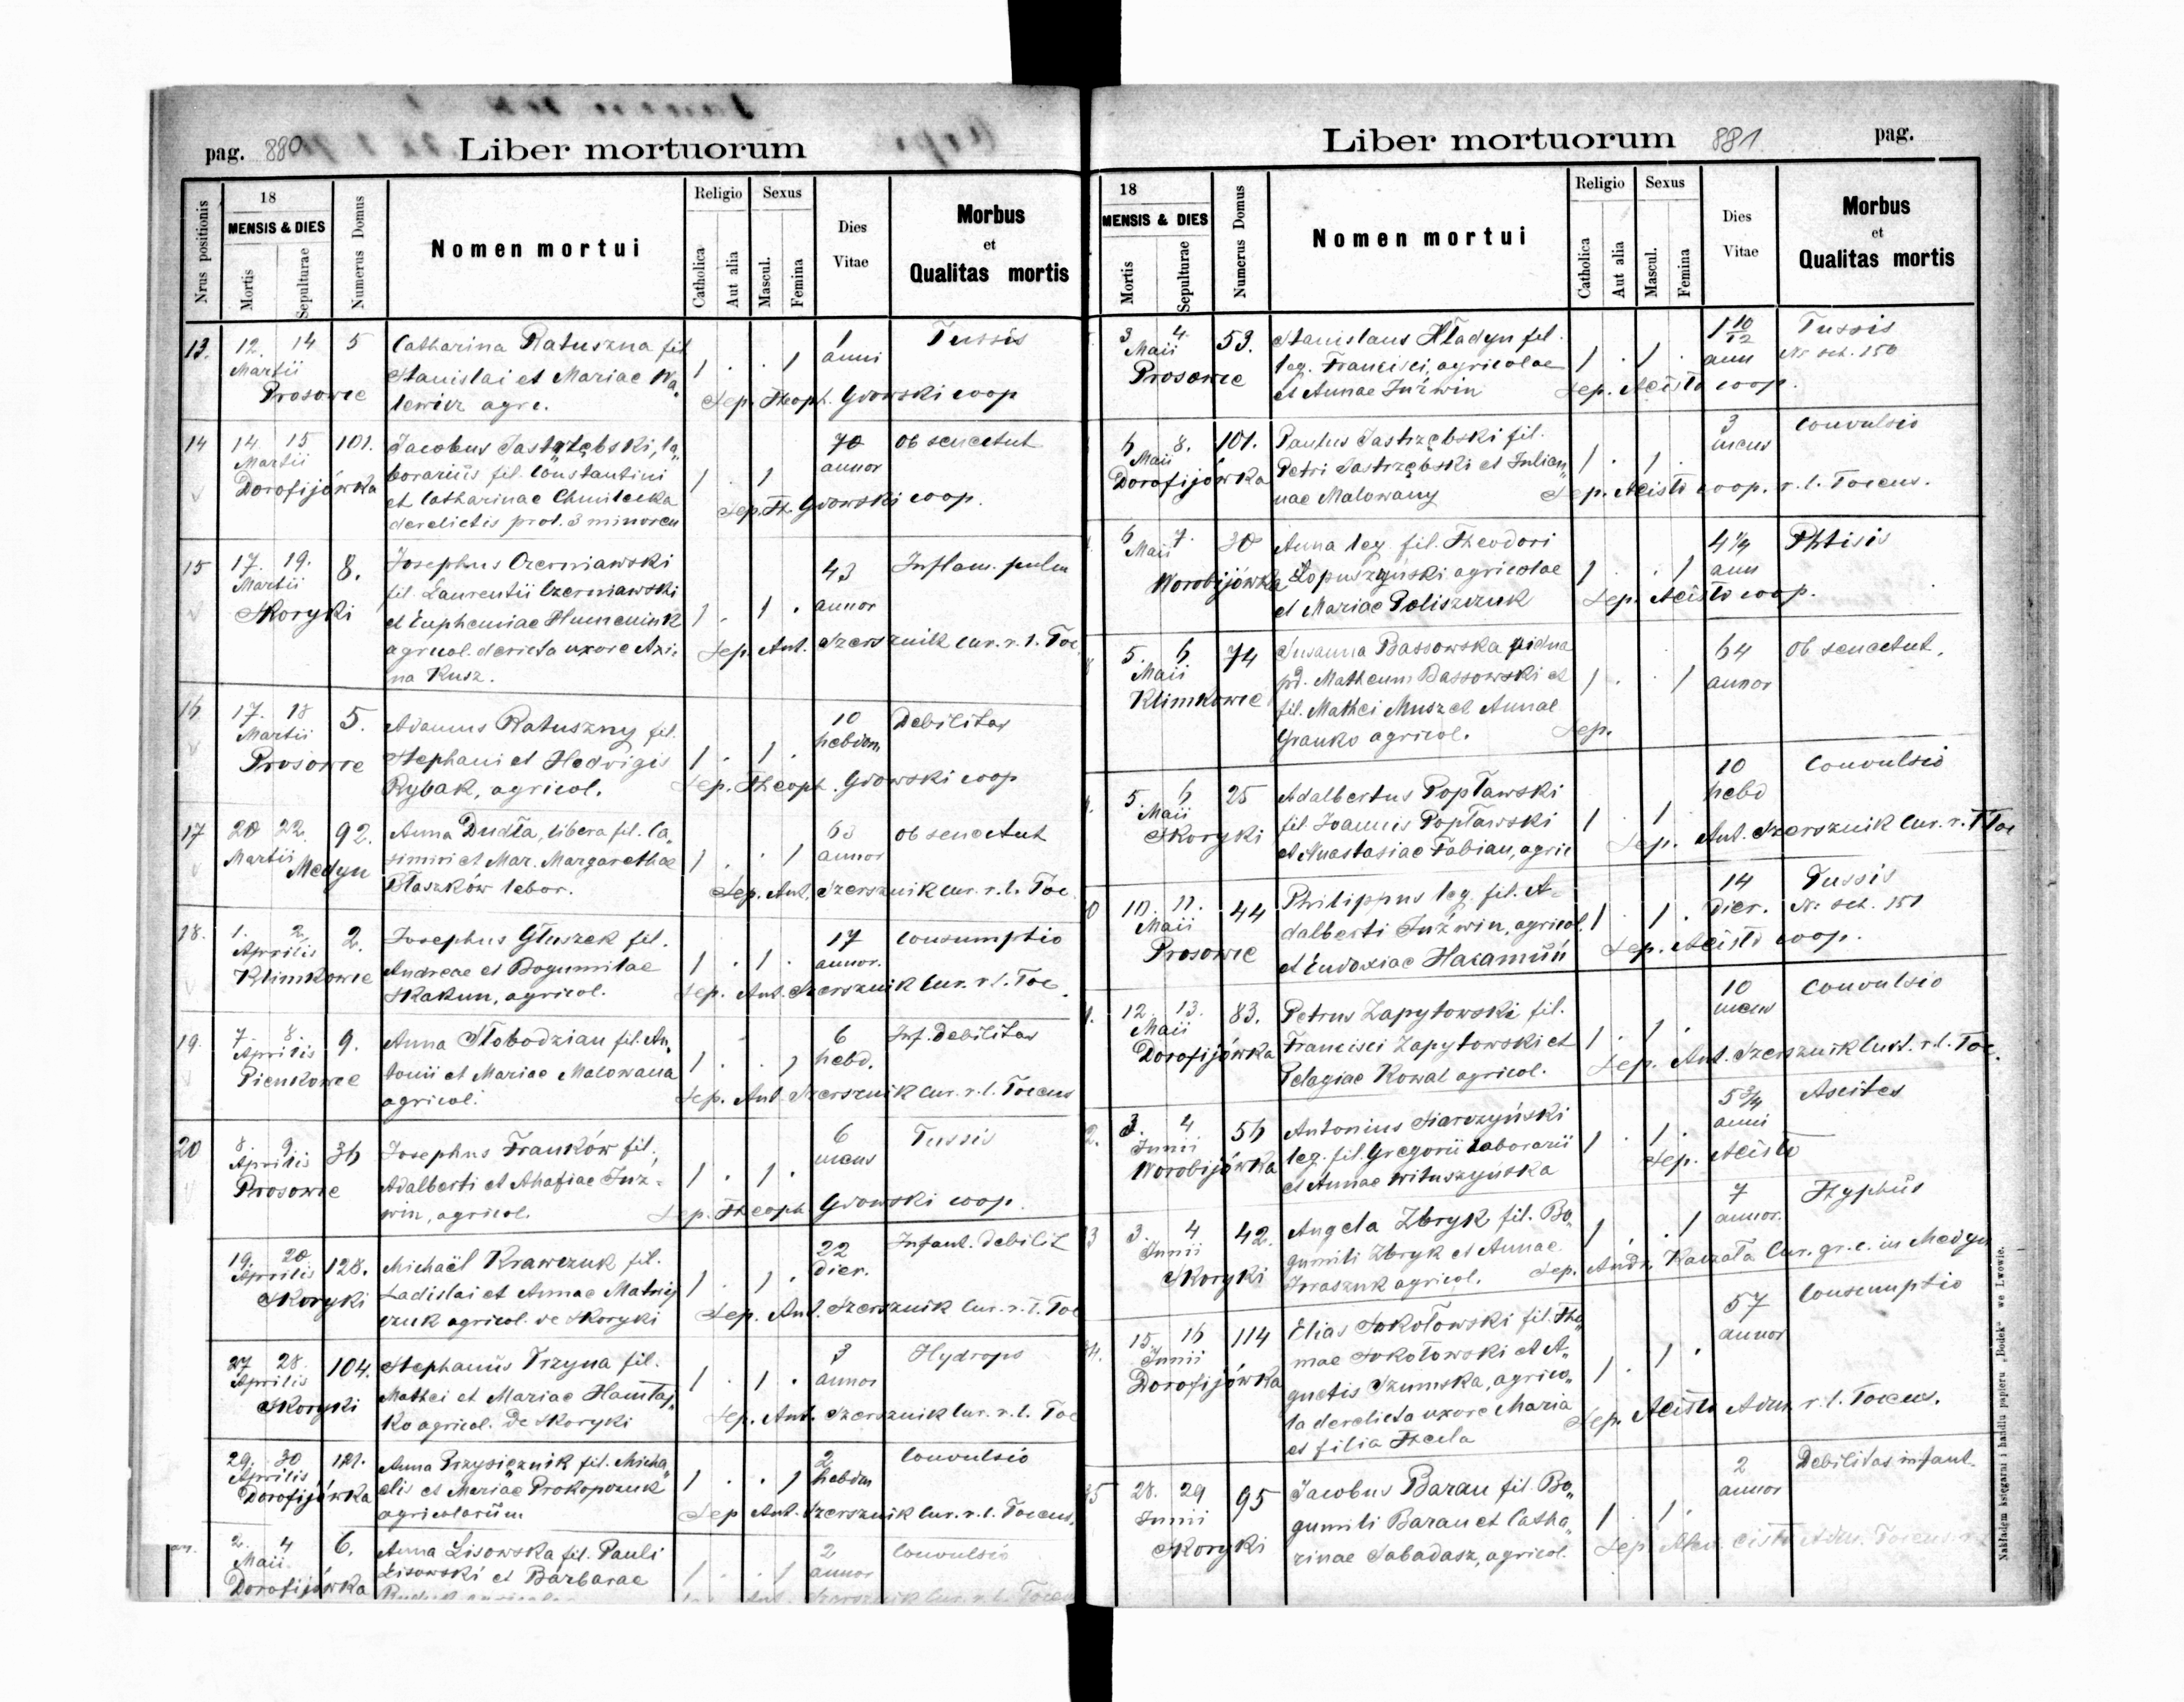 pag. 880 Liber mortuorum
Nrus positionis
18
MENSIS & DIES
Mortis
Sepulturae
Numerus Domus
Nomen mortui
Religio
Catholica
Aut alia
Sexus
Mascul.
Femina
Dies
Vitae
Morbus
et
Qualitas mortis
13. 12. 14 5 Catharina Ratuszna fil 1 . . 1 1 Tussis
Martii Stanislai et Mariae Wa„ anni
Prosowce lewicz agr. Sep. Theoph. Gdowski coop
14 14 15 101. Jacobus Jastrzębski, la„ 1 . 1 70 Ob senectut
Martii borariüs fil. Constantini annor
Dorofijówka et Catharinae Chmilecka Sep. Th. Gdowski coop.
derelictis prol. 3 minoren
15 17. 19. 8. Josephus Czerniawski 1 . 1 . 43 Inflam. pulm
Martii fil. Laurentii Czerniawski annor
Skoryki et Eupheniae Humeniuk
agricol. derieta uxore Axi„ Sep. Ant. Szersznik Cur. r. l. Toc
na Kusz.
16 17. 18 5. Adamus Ratuszny fil. 1 . 1 . 10 Debilitas
Martii Stephani et Hedvigis hebdom
Prosowce Rybak, agricol. Sep. Theoph. Gdowski coop
17 20 22. 92. Anna Dudła, libera fil. Ca„ 1 . . 1 63 ob senectut
Martii simiri et Mar. Margarethae annor
Medyn Ptaszków labor. Sep. Ant. Szersznik Cur. r. l. Toc
18. 1. 2. 2. Josephus Głuszek fil. 1 . 1 . 17 Consumptio
Aprilis Andreae et Bogumilae annor.
Klimkowce Skakun, agricol. Sep. Ant. Szersznik Cur. r. l. Toc.
19. 7. 8. 9. Anna Słobodzian fil. An„ 1 . . 1 6 Inf. Debilitas
Aprilis tonii et Mariae Malowana hebd.
Pienkowce agricol. Sep. Ant Szersznik Cur. r. l. Tocens
20 8. 9. 36 Josephus Franków fil. 1 . 1 . 6 Tussis
Aprilis Adalberti et Ahafiae Juź- mens
Prosowce win, agricol. Sep. Theoph. Gdowski coop.
19. 20 128. Michaël Krawczuk fil. 1 . 1 . 22 Infant. debilit
Aprilis Ladislai et Annae Matwij dier.
Skoryki czuk agricol. de Skoryki Sep. Ant. Szersznik Cur. r. l. Toc
27 28. 104. Stephanüs Trzyna fil. 1 . 1 . 3 Hydrops
Aprilis Mathei et Mariae annor
Skoryki ko agricol. de Skoryki Sep. Ant. Szersznik Cur. r. l. Toc
29. 30 121. Anna Przysiężnik fil. Micha„ 1 . . 1 2 Convulsio
Aprilis elis et Mariae Prokopczuk hebdom
Dorofijówka agricolarüm Sep Ant. Szersznik Cur. r. l. Tocens.
2. 4 6. Anna Lisowska fil. Pauli 1 . . 1 2 Convulsio
Maii Lisowski et Barbarae annor
Dorofijówka Ant. Szersznik Cur. r. l. Tocens
Liber mortuorum 881 pag.
18
MENSIS & DIES
Mortis
Sepulturae
Numerus Domus
Nomen mortui
Religio
Catholica
Aut alia
Sexus
Mascul.
Femina
Dies
Vitae
Morbus
et
Qualitas mortis
3 4. 53. Stanislaus Hładyn fil. 1 . 1 . 1 10/12 Tussis
Maii leg. Francisci, agricolae ann Nr sch. 150
Prosowce et Annae Juźwin Sep. Aĉisto coop.
6 8. 101. Paulus Jastrzębski fil. 1 . 1 . 3 Convulsio
Maii Petri Jastrzębski et Julian„ mens
Dorofijówka nae Malowany Sep. Aĉisto coop. r. l. Tocens.
6 7. 30 Anna leg. fil. Theodori 1 . . 1 4 1/4 Phtisis
Maii Łopuszyński agricolae ann
Worobijówka et Mariae Poliszczuk Sep. Aĉisto coop.
5. 6 74 Susanna Bassowska vidua 1 . . 1 64 Ob senectut.
Maii pd. Matheum Bassowski et annor
Klimkowce fil. Mathei Musz et Annae
Granko agricol. Sep.
5. 6 25 Adalbertus Popławski 1 . 1 . 10 Convulsio
Maii fil Joannis Popławski hebd
Skoryki et Anastasiae Fabian, agric Sep. Ant. Szersznik Cur. r. l Toc
10. 11. 44 Philippus leg. fil. A- 1 . 1 . 14 Tussis
Maii dalberti Juźwin, agricol. Dier. Nr sch. 151
Prosowce et Eudoxiae Sep. Aĉisto coop.
12. 13. 83. Petrus Zapytowski fil. 1 . 1 . 10 Convulsio
Maii Francisci Zapytowski et mens
Dorofijówka Pelagiae Kowal agricol. Sep. Ant. Szersznik Cur. r. l. Toc.
3. 4 56 Antonius Siarczyński 1 . 1 . 5 3/4 Ascites
Junii leg. fil. Gregorii Laborarii anni
Worobijówka et Annae Wituszyńska Sep. Aĉisto
3. 4 42. Angela Zbryk fil. Bo„ 1 . . 1 7 Thyphüs
Junii gumili Zbryk et Annae annor.
Skoryki agricol. Sep. Andr. Kaczała Cur. gr. c. in Medyn
15. 16 114 Elias Sokołowski fil. Tho„ 1 . 1 . 57 Consumptio
Junii mae Sokołowski et A„ annor
Dorofijówka gnetis Szumska, agrico„
la derelicta uxore Maria Sep. Aĉisto Adm. r. l. Tocens.
et filia Thecla
28. 29 95 Jacobus Baran fil. Bo„ 1 . 1 . 2 Debilitas infant.
Junii gumili Baran et Catha„ annor
Skoryki rinae Sabadasz, agricol. Sep. Alex. Cisto Adm. Tocens
Nakładem księgarni i handlu papieru „Bodek" we Lwowie.